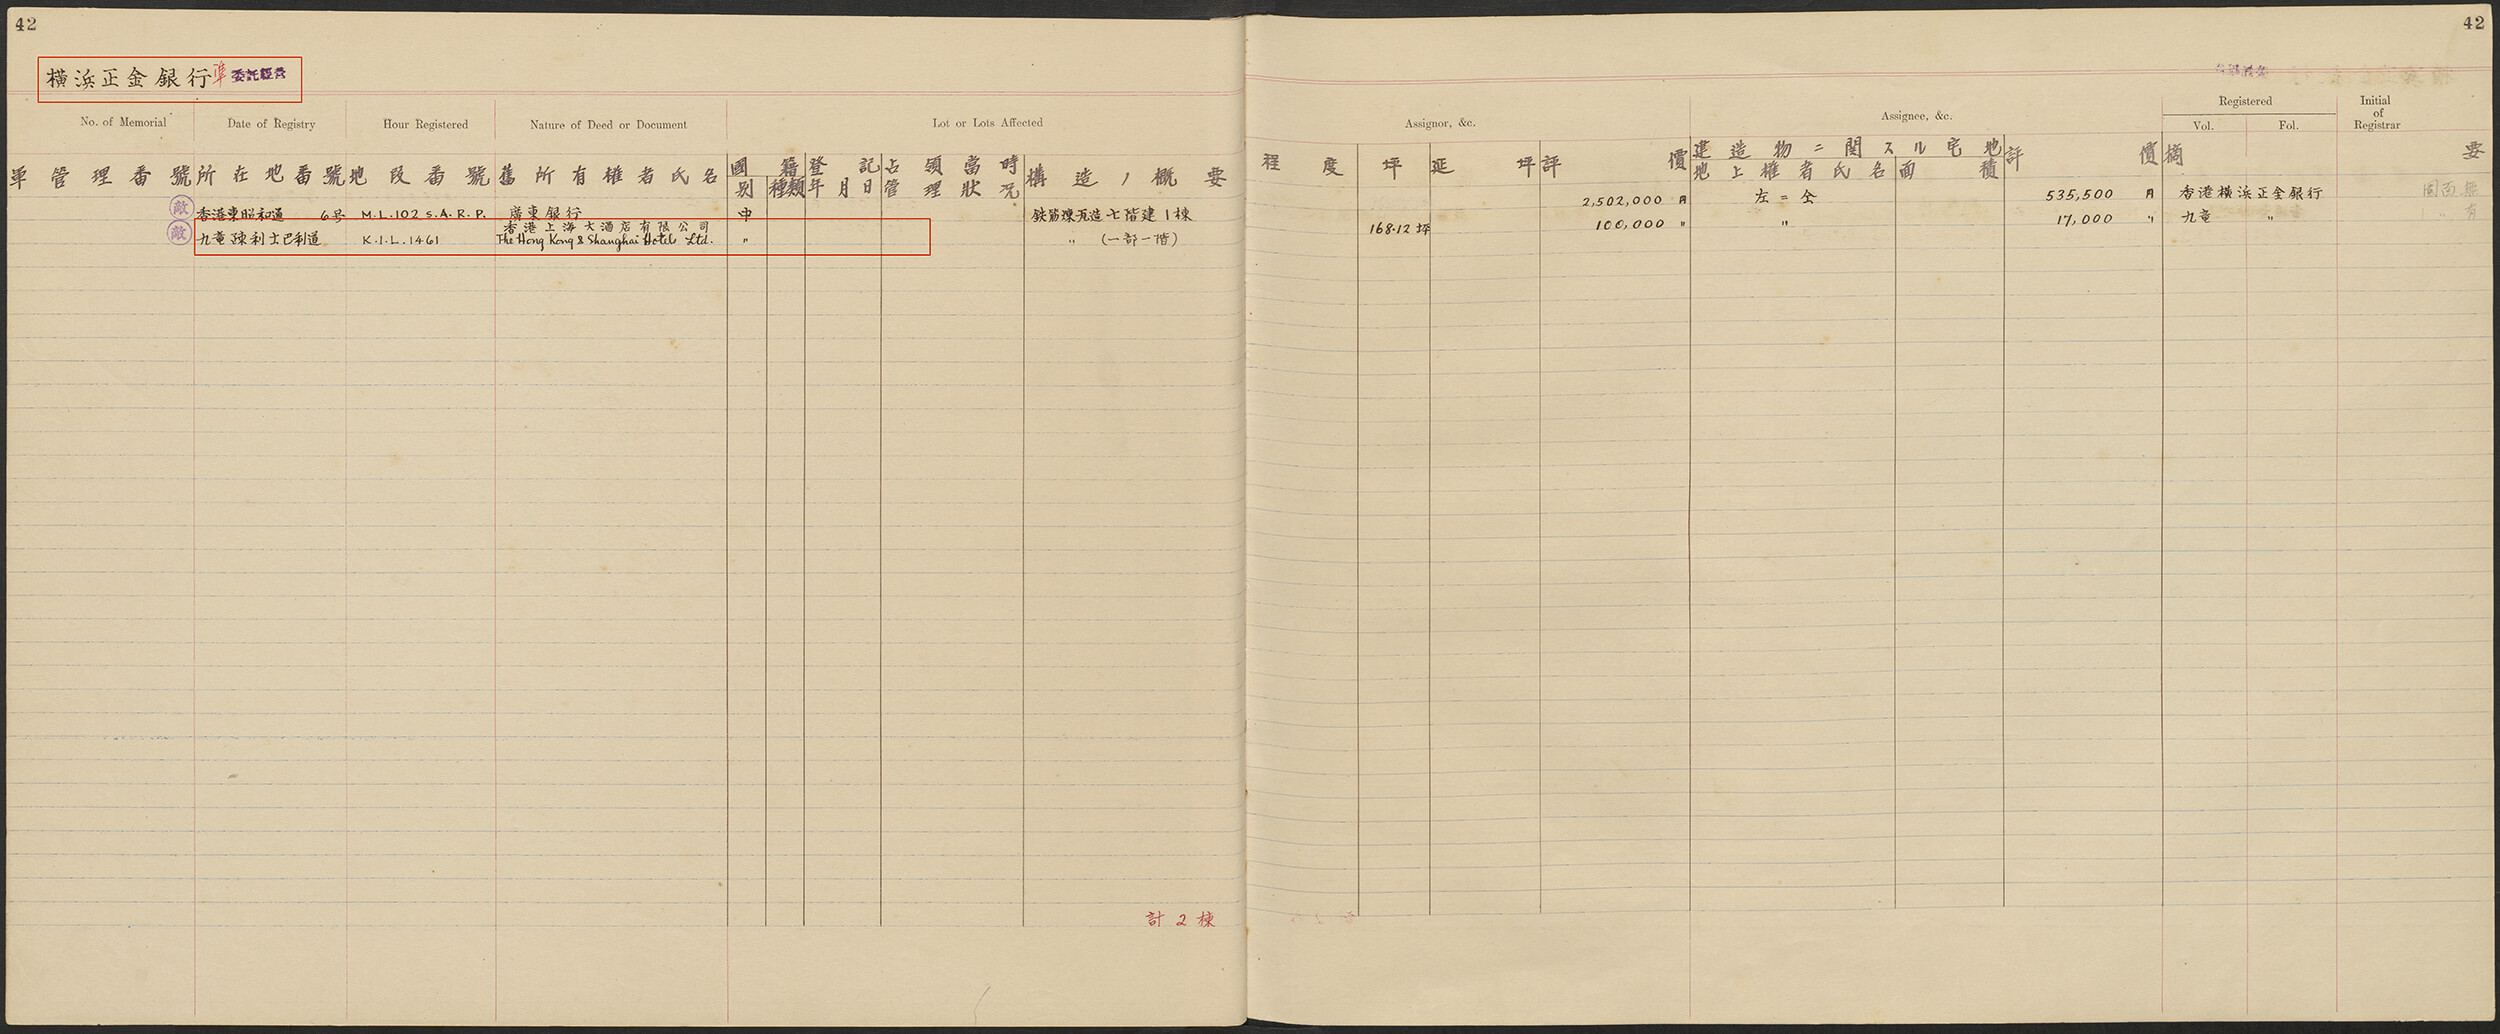 42
42
横浜正金銀行 準 委託經営
No. of Memorial Date of Registry Hour Registered Nature of Deed or Document Lot or Lots Affected
Assignor, &c. Assignee, &c. Registered Vol. Fol. Initial of Registrar
軍管理番號 所在地番號 地段番號 舊所有權者氏名 國籍別 種類 登記年月日 占領當時管理狀況 構造ノ概要
程度 坪 延坪 評價 建造物ニ関スル宅地 地上權者氏名 面積 評價 摘要
敵 香港東昭和通 6号 M.L.102 S.A.R.P. 廣東銀行 中 鉄筋煉瓦造七階建1棟 2,502,000円 左=仝 535,500円 香港横浜正金銀行 図面無
敵 九竜 陳利士巴利道 K.I.L.1461 香港上海大酒店有限公司 The Hong Kong & Shanghai Hotels Ltd. 〃 〃 (一部一階) 168.12坪 100,000〃 〃 17,000〃 九竜 〃 〃 有
計2棟